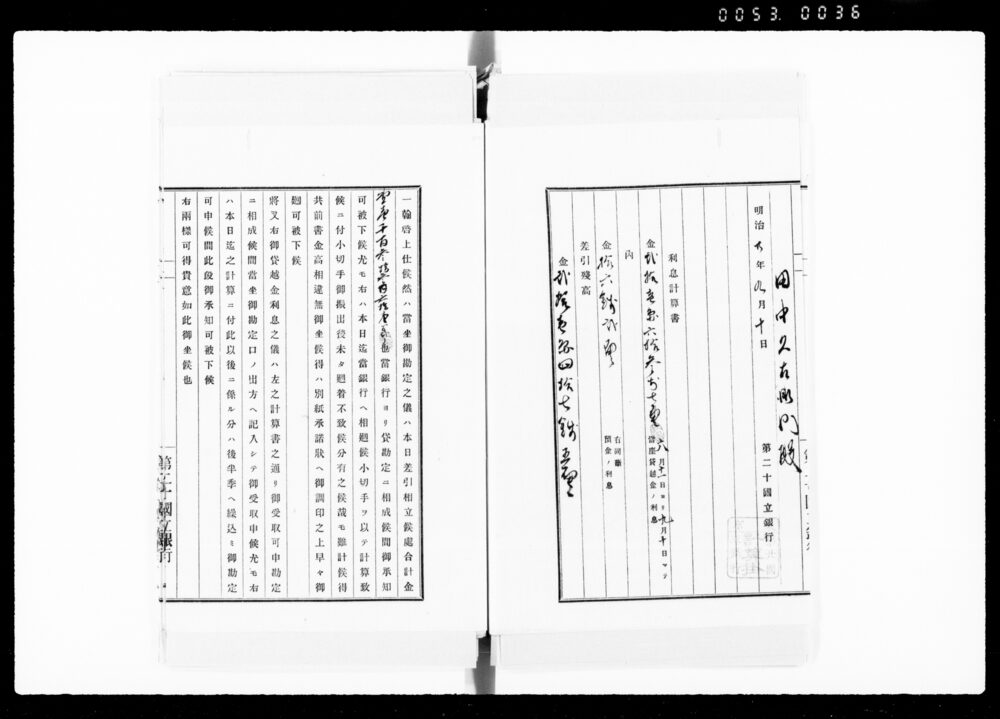 0053. 0036
田中久右衛門殿
第二十國立銀行
明治十年九月十日
利息計算書
金貳拾壱円六拾参銭七厘
六月十一日ヨリ九月十日マテ
當座貸越金ノ利息
内
金拾六銭貳厘
右同斷
預金ノ利息
差引残高
金貳拾壱円四拾七銭五厘
一翰啓上仕候然ハ當坐御勘定之儀ハ本日差引相立候處合計金
也當銀行ヨリ貸勘定ニ相成候間御承知
可被下候尤モ右ハ本日迄當銀行ヘ相廻候小切手ヲ以テ計算致
候ニ付小切手御振出後未タ廻着不致候分有之候哉モ難計候得
共前書金高相違無御坐候得ハ別紙承諾狀ヘ御調印之上早々御
廻可被下候
將又右御貸越金利息之儀ハ左之計算書之通リ御受取可申勘定
ニ相成候間當坐御勘定口ノ出方ヘ記入シテ御受取申候尤モ右
ハ本日迄之計算ニ付此以後ニ係ル分ハ後半季ヘ繰込ミ御勘定
可申候間此段御承知可被下候
右兩樣可得貴意如此御坐候也